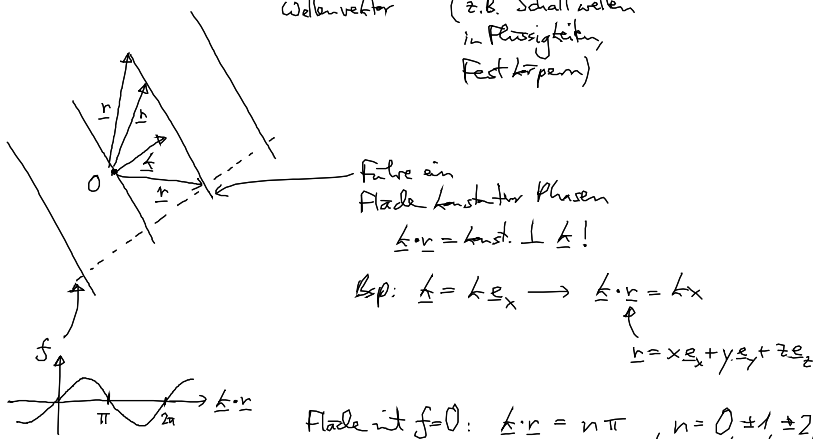 Wellenvektor (z.B. Schallwellen
in Flüssigkeiten,
Festkörpern)
r
r
k
0
r
Führe ein
Fläche konstanter Phasen
k·r = konst. ⊥ k!
Bsp: k = k e_x → k·r = kx
r = x e_x + y e_y + z e_z
f
π 2π k·r
Fläche mit f=0: k·r = nπ , n = 0, ±1, ±2,